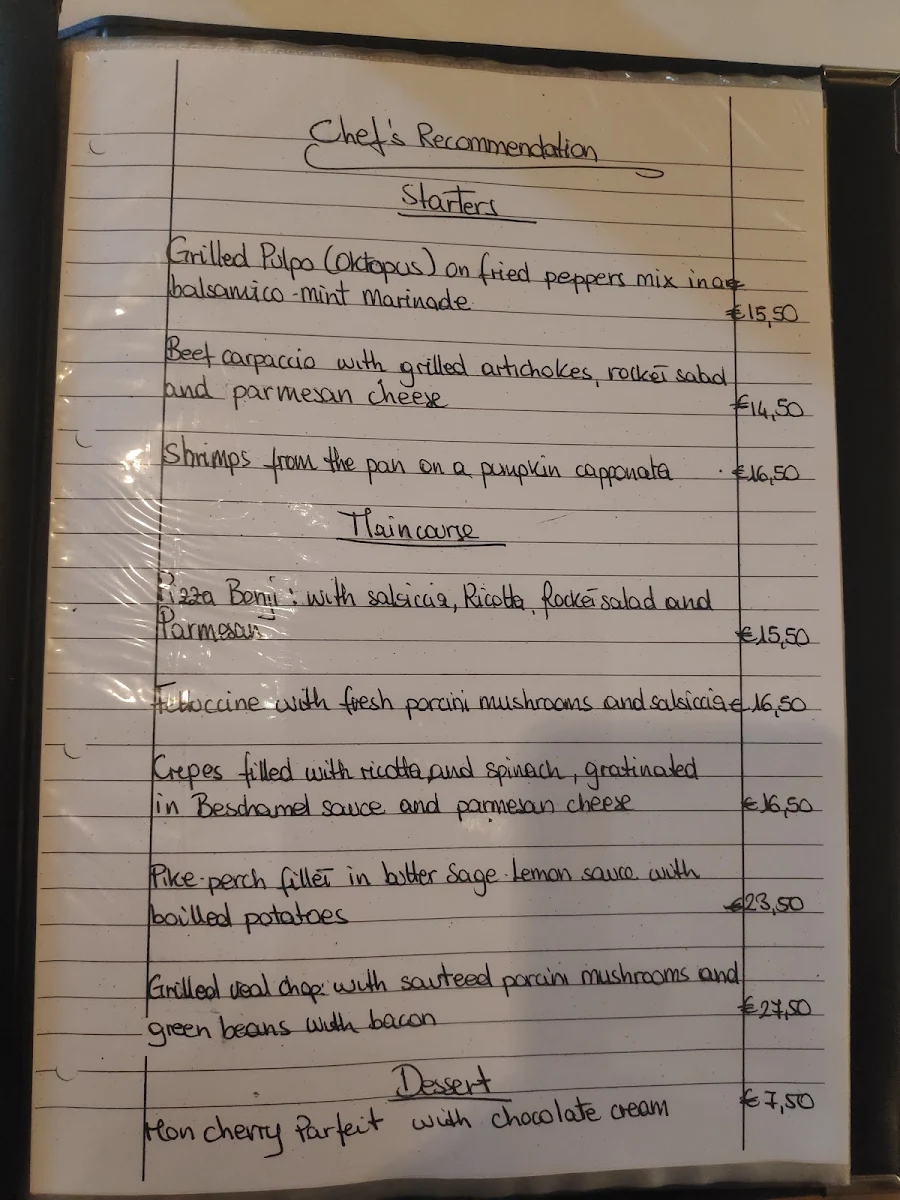 Chef's Recommendation
Starters
Grilled Pulpo (Oktopus) on fried peppers mix in a
balsamico-mint Marinade
€15,50
Beef carpaccio with grilled artichokes, rocket salad
and parmesan cheese
€14,50
Shrimps from the pan on a pumpkin capponata €16,50
Maincourse
Pizza Benji: with salsiccia, Ricotta, Rocket salad and
Parmesan
€15,50
Fettuccine with fresh porcini mushrooms and salsiccia € 16,50
Crepes filled with ricotta and spinach, gratinated
in Beschamel sauce and parmesan cheese €16,50
Pike-perch fillet in butter Sage-Lemon sauce with
boilled potatoes
€23,50
Grilled veal chop with sauteed porcini mushrooms and
green beans with bacon
€27,50
Dessert
Mon cherry Parfeit with chocolate cream €7,50